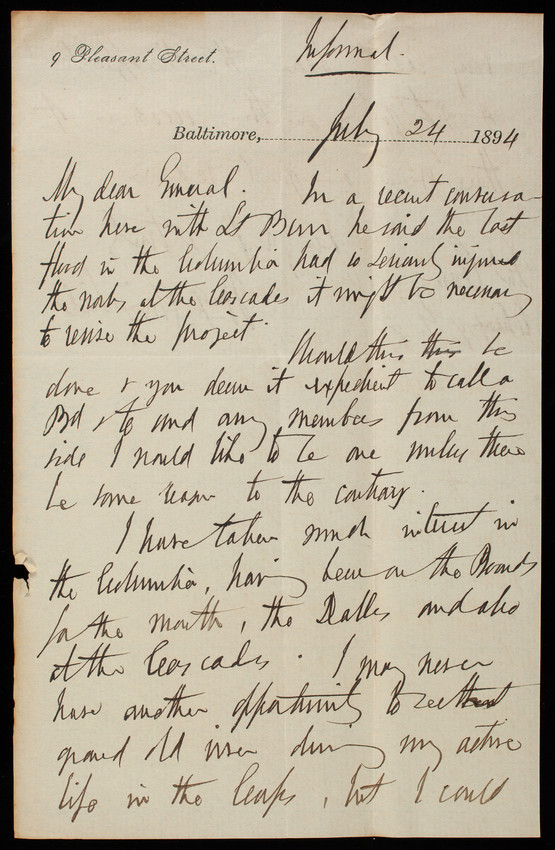 9 Pleasant Street.
Informal.
Baltimore, July 24 1894
My dear General. In a recent conversa-
tion here with Lt Burr he said the last
flood in the Columbia had so seriously injured
the works at the Cascades it might be necessary
to revise the project.
Should this this be
done & you deem it expedient to call a
Bd & to send any members from this
side I would like to be one unless there
be some reason to the contrary.
I have taken much interest in
the Columbia, having been on the Boards
for the mouth, the Dalles and also
at the Cascades. I may never
have another opportunity to see that
grand old river during my active
life in the Corps, but I could